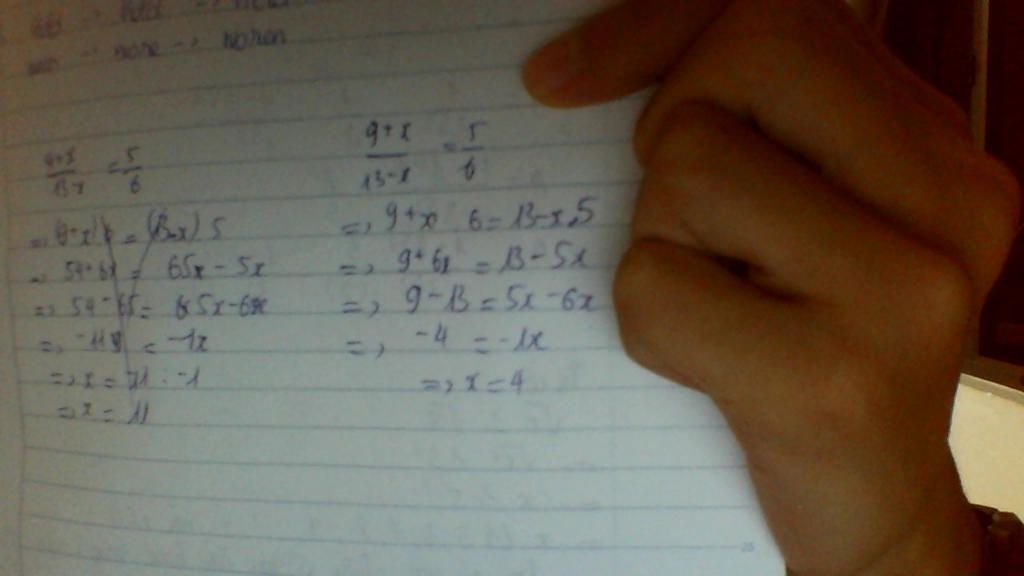 → none → noren
9+x/13-x = 5/6
=> (9+x)6 = (13-x)5
=> 54+6x = 65x-5x
=> 54-65 = 5x-6x
=> -11 = -1x
=> x = 11 : -1
=> x = 11
9+x/13-x = 5/6
=> 9+x . 6 = 13-x.5
=> 9+6x = 13-5x
=> 9-13 = 5x-6x
=> -4 = -1x
=> x = 4
25